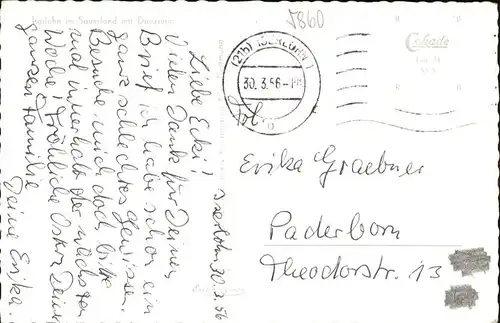 Iserlohn im Sauerland mit Danzturm
5860
(21b) ISERLOHN 1
30.3.56-
Cekade
Iserlohn 30.3.56
Liebe Erika!
Vielen Dank für Deinen
Brief, ich habe schon ein
ganz schlechtes Gewissen.
Besuche mich doch bitte
mal innerhalb der nächsten
Woche! Fröhliche Ostern Deiner
ganzen Familie
Deine Erika
Erika Graebner
Paderborn
Theodorstr. 13